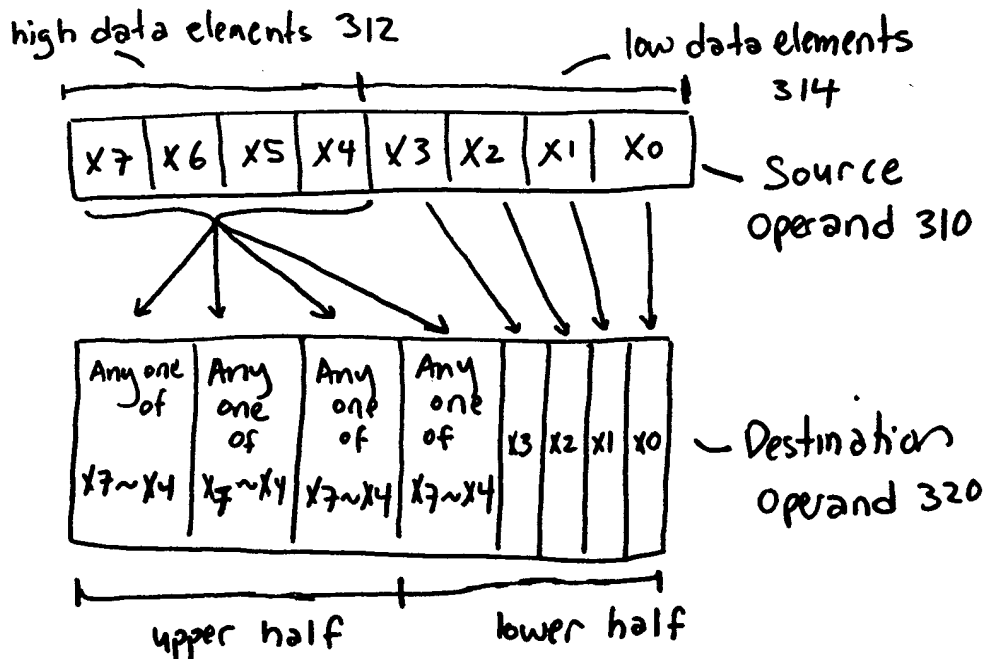 high data elements 312
low data elements
314
X7 X6 X5 X4 X3 X2 X1 X0
Source
operand 310
Any one
of
X7~X4
Any
one
of
X7~X4
Any
one
of
X7~X4
Any
one
of
X7~X4
X3 X2 X1 X0
Destination
operand 320
upper half
lower half